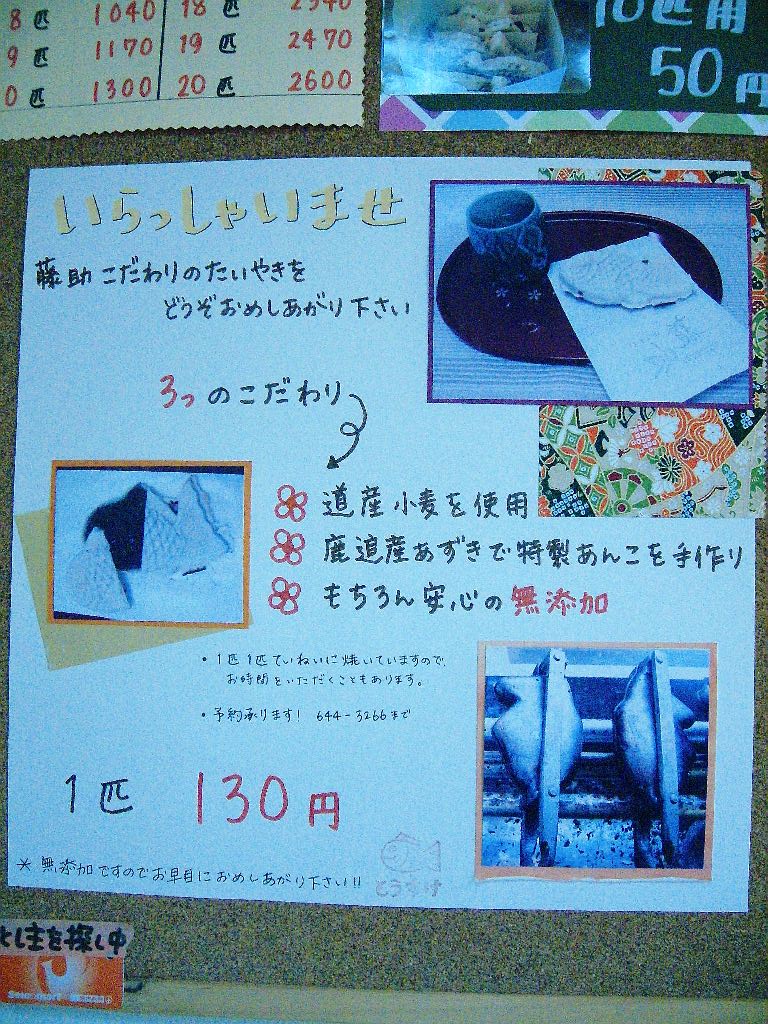 8匹 1040 18匹 2340
9匹 1170 19匹 2470
0匹 1300 20匹 2600
10匹用
50円
いらっしゃいませ
藤助こだわりのたいやきを
どうぞおめしあがり下さい
3つのこだわり
道産小麦を使用
鹿追産あずきで特製あんこを手作り
もちろん安心の無添加
・1匹1匹ていねいに焼いていますので、
お時間をいただくこともあります。
・予約承ります! 644-3266まで
1匹 130円
* 無添加ですのでお早目におめしあがり下さい!!
とうすけ
とし主を探し中